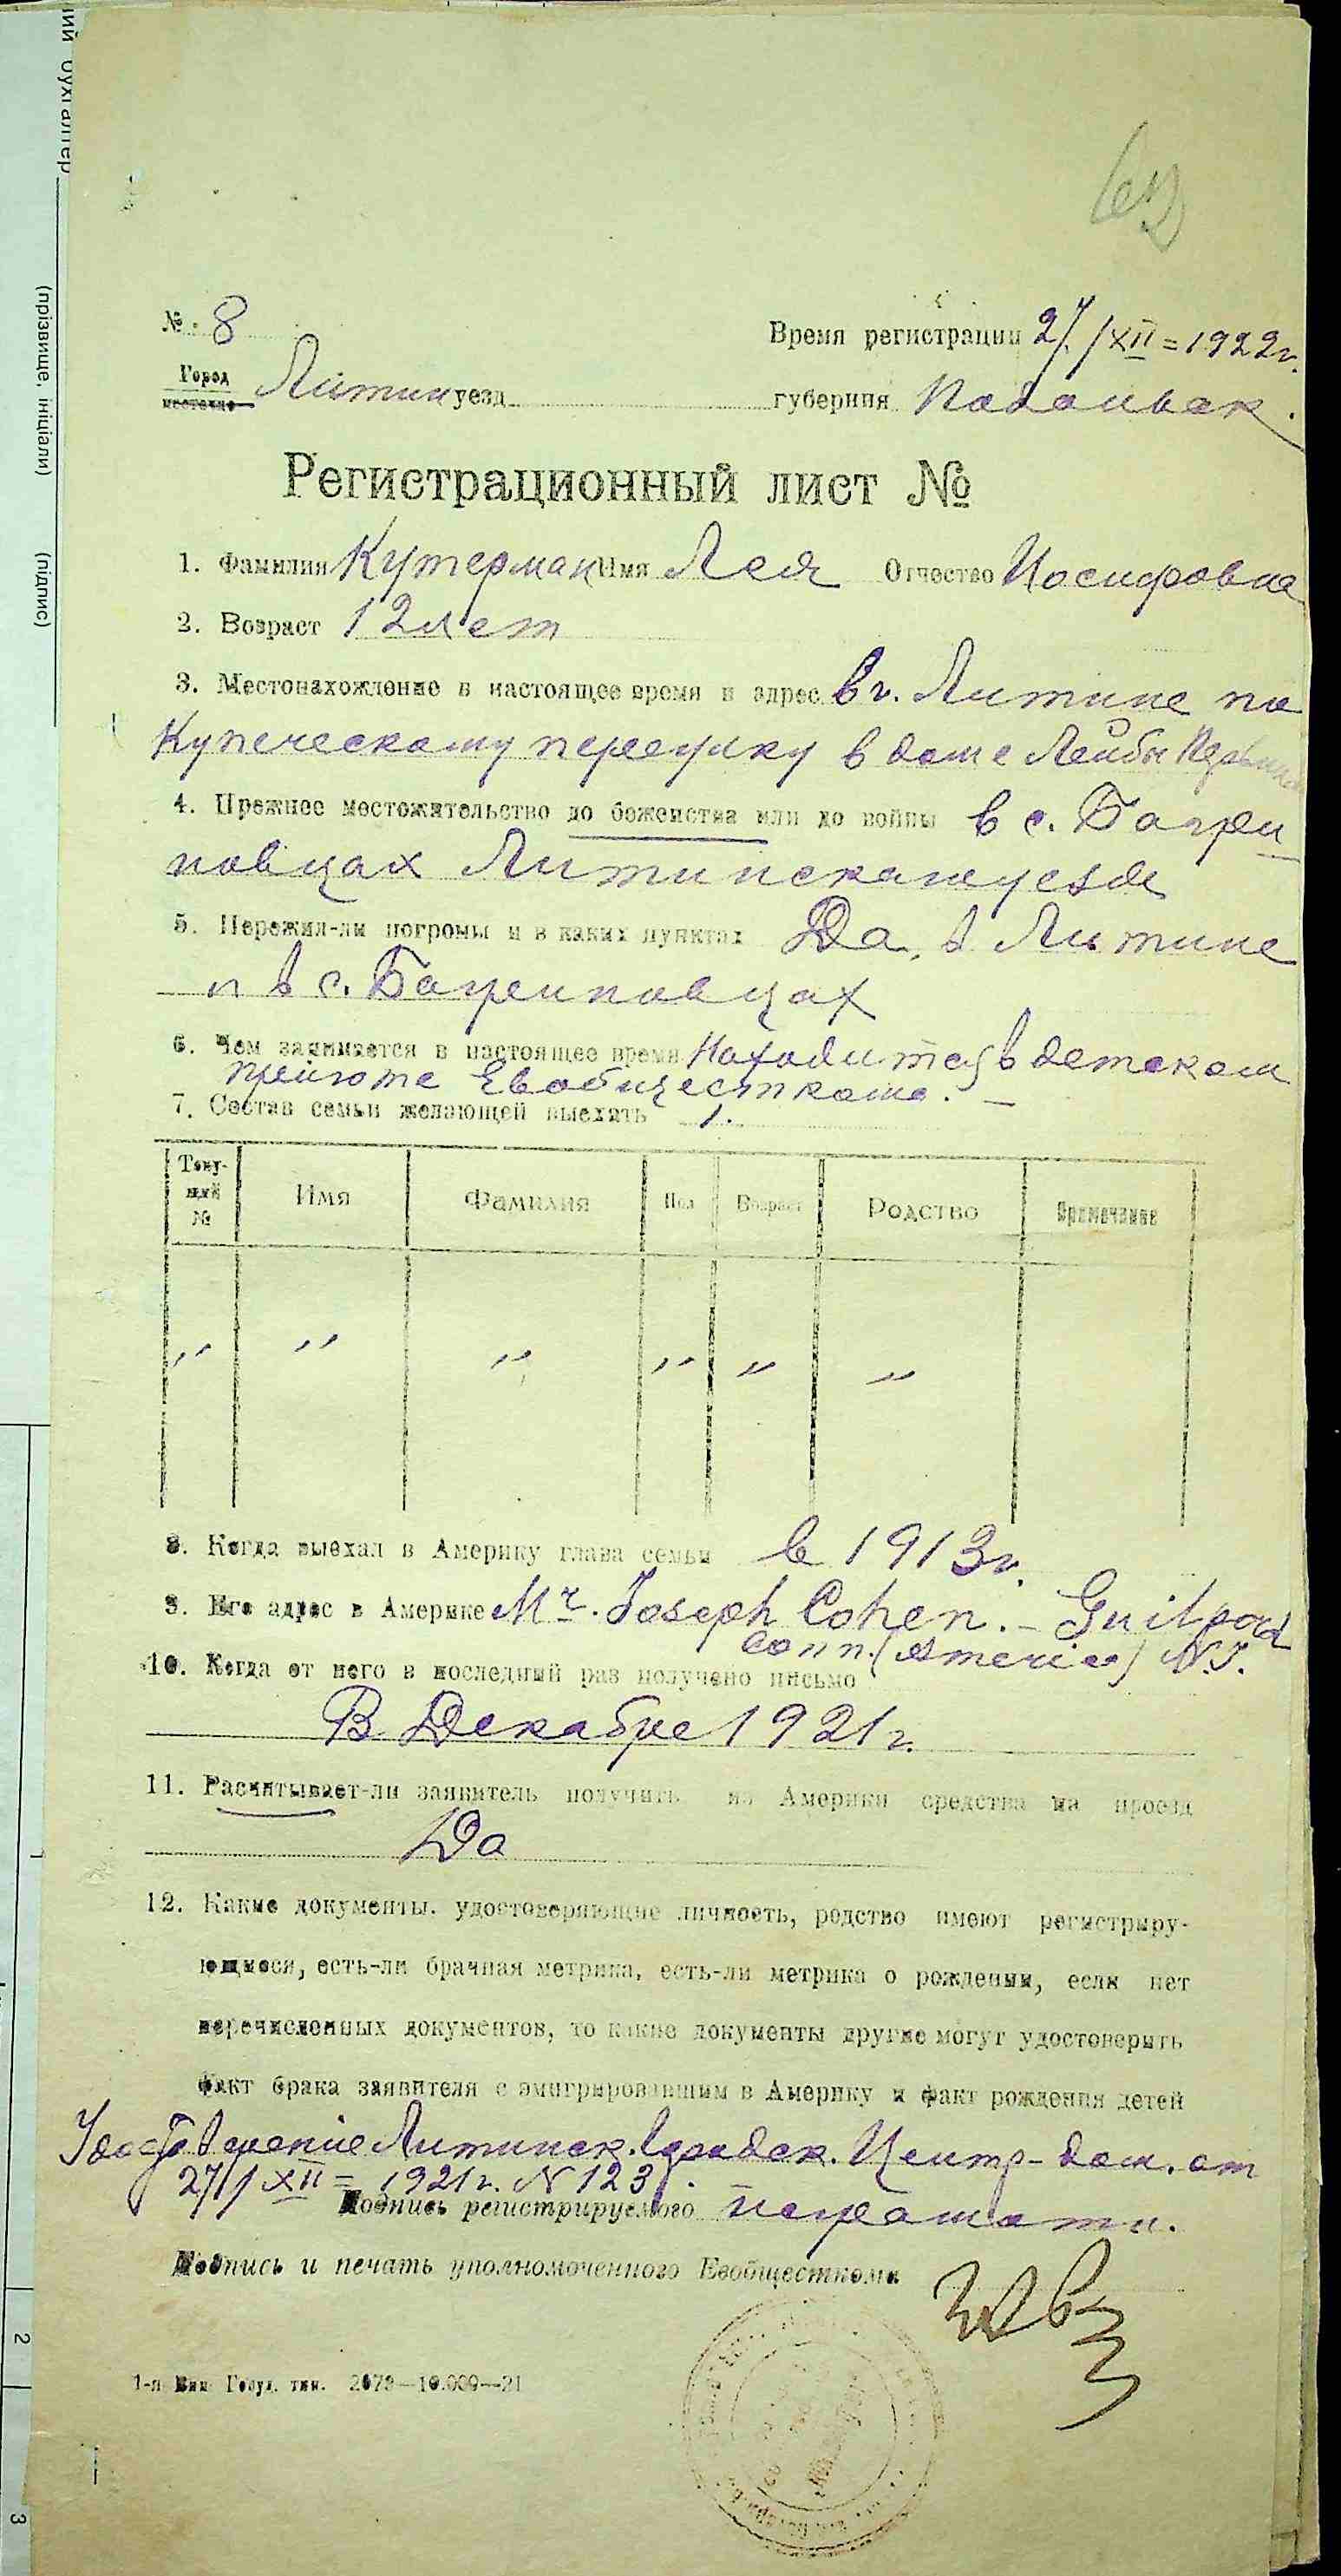 ий бухгалтер
(прізвище, ініціали) (підпис)
№ 8
Время регистрации 27/XII=1922г.
Город
местечко
Литин уезд губерния Подольск.
Регистрационный лист №
1. Фамилия Кутерман Имя Лея Отчество Иосифовна
2. Возраст 12 лет
3. Местонахождение в настоящее время и адрес в г. Литине по
Купеческому переулку в доме Лейбы
4. Прежнее местожительство до беженства или до войны в с. Багри
новцах Литинском уезде
5. Пережил-ли погромы и в каких пунктах Да, в Литине
и в с. Багриновцах
6. Чем занимается в настоящее время Находится в детском
приюте Евобщесткома.
7. Состав семьи желающей выехать 1.
Теку-
щий
№
Имя
Фамилия
Пол
Возраст
Родство
Примечание
" " " " " "
8. Когда выехал в Америку глава семьи в 1913г.
9. Его адрес в Америке Mr. Joseph Cohen. - Guilford
Conn. (America) N.J.
10. Когда от него в последний раз получено письмо
В Декабре 1921г.
11. Расчитывает-ли заявитель получить из Америки средства на проезд
Да
12. Какие документы. удостоверяющие личность, родство имеют регистриру-
ющиеся, есть-ли брачная метрика, есть-ли метрика о рождении, если нет
перечисленных документов, то какие документы другие могут удостоверить
факт брака заявителя с эмигрировавшим в Америку и факт рождения детей
Литинск. Городск. Центр-дом. от
27/XII=1921г. N 123.
Подпись регистрируемого неграмотн.
Подпись и печать уполномоченного Евобщесткома
1-я Вин. Госуд. тип. 2073—10.000—21
2
3